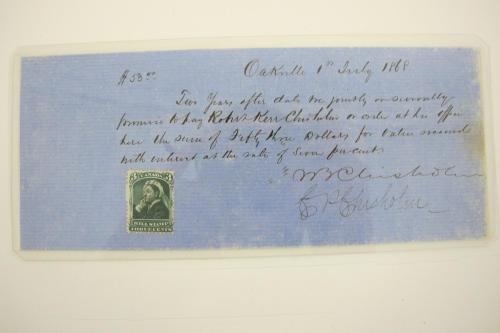 $53.00 Oakville 1st July 1868
Two Years after date we jointly or severally
promise to pay Robert Kerr Chisholm or order at his office
here the sum of Fifty three Dollars for value received
with interest at the rate of Seven per cent
W B Chisholm
C P Chisholm
3 CANADA 3
BILL STAMP
THREE CENTS